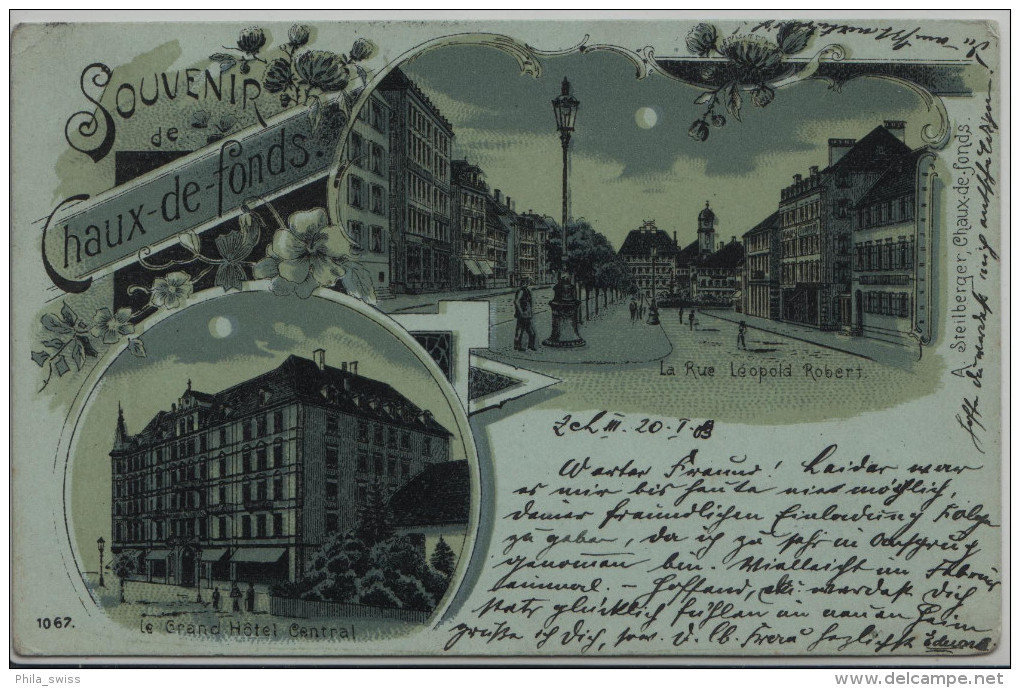 Souvenir
de
Chaux-de-fonds.
La Rue Léopold Robert.
A. Steilberger, Chaux-de-fonds.
le Grand Hôtel Central
1067.
Zch III. 20. I. 03
Werter Freund! Leider war
es mir bis heute nicht möglich,
deiner freundlichen Einladung Folge
zu geben, da ich zu sehr in Anspruch
genommen bin. Vielleicht im Februar
einmal. – Hoffend, du werdest Dich
stets glücklich fühlen im neuen Heim
grüsse ich Dich, sow. d. lb. Frau herzlichst Edward.
Hoffe du werdest mich
Phila_swiss
delcampe.net